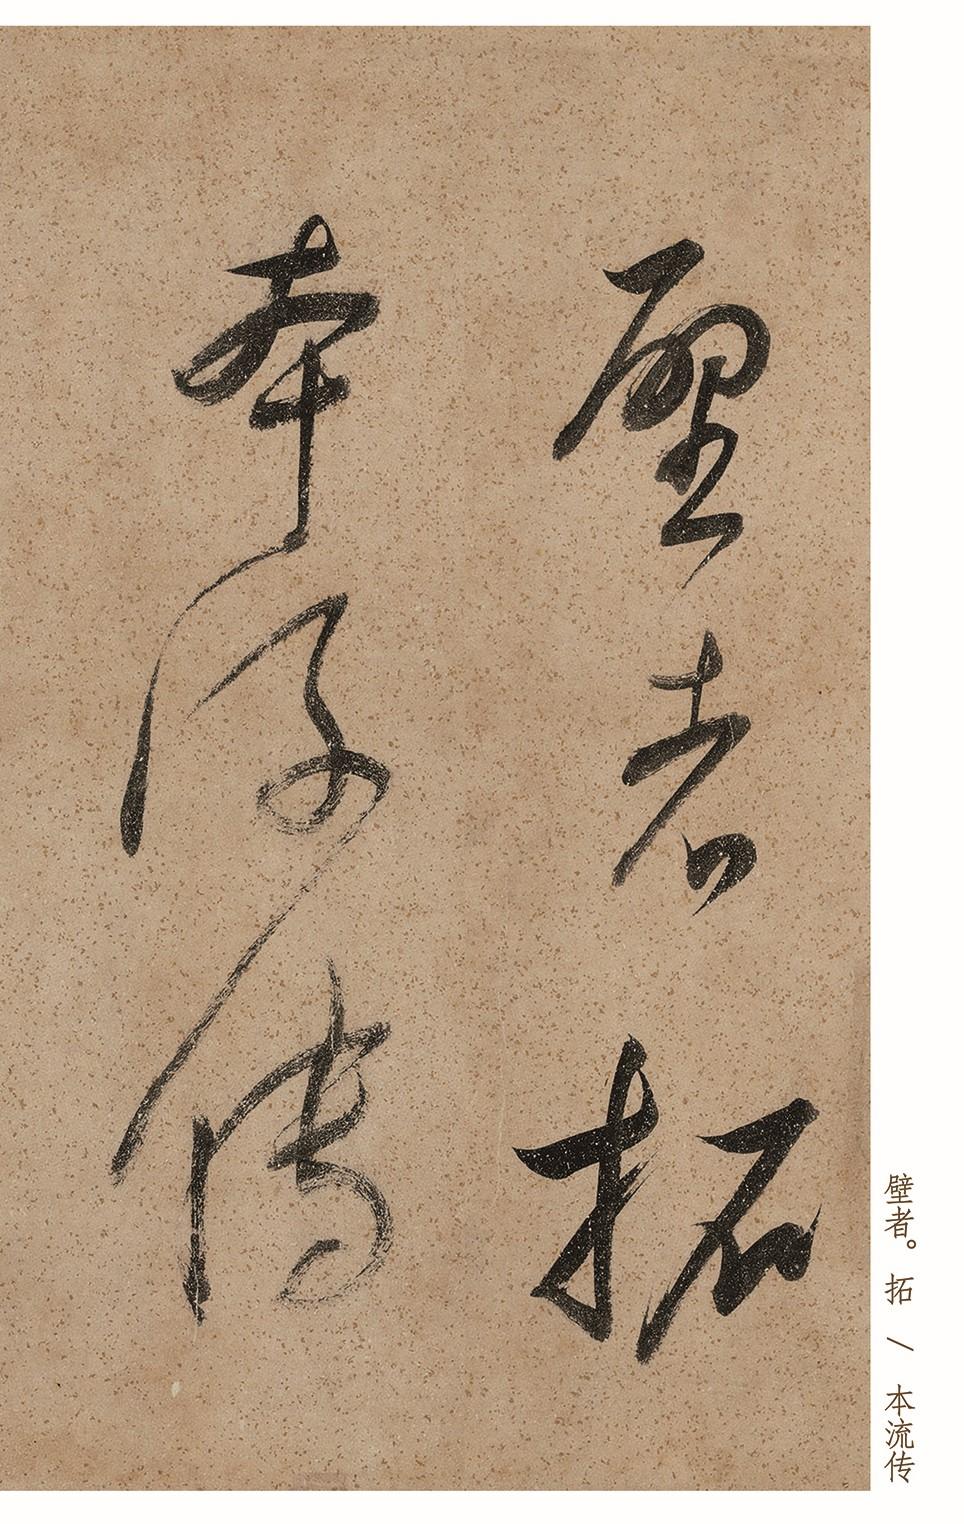 壁者拓
本流傳
壁者。拓 / 本流传